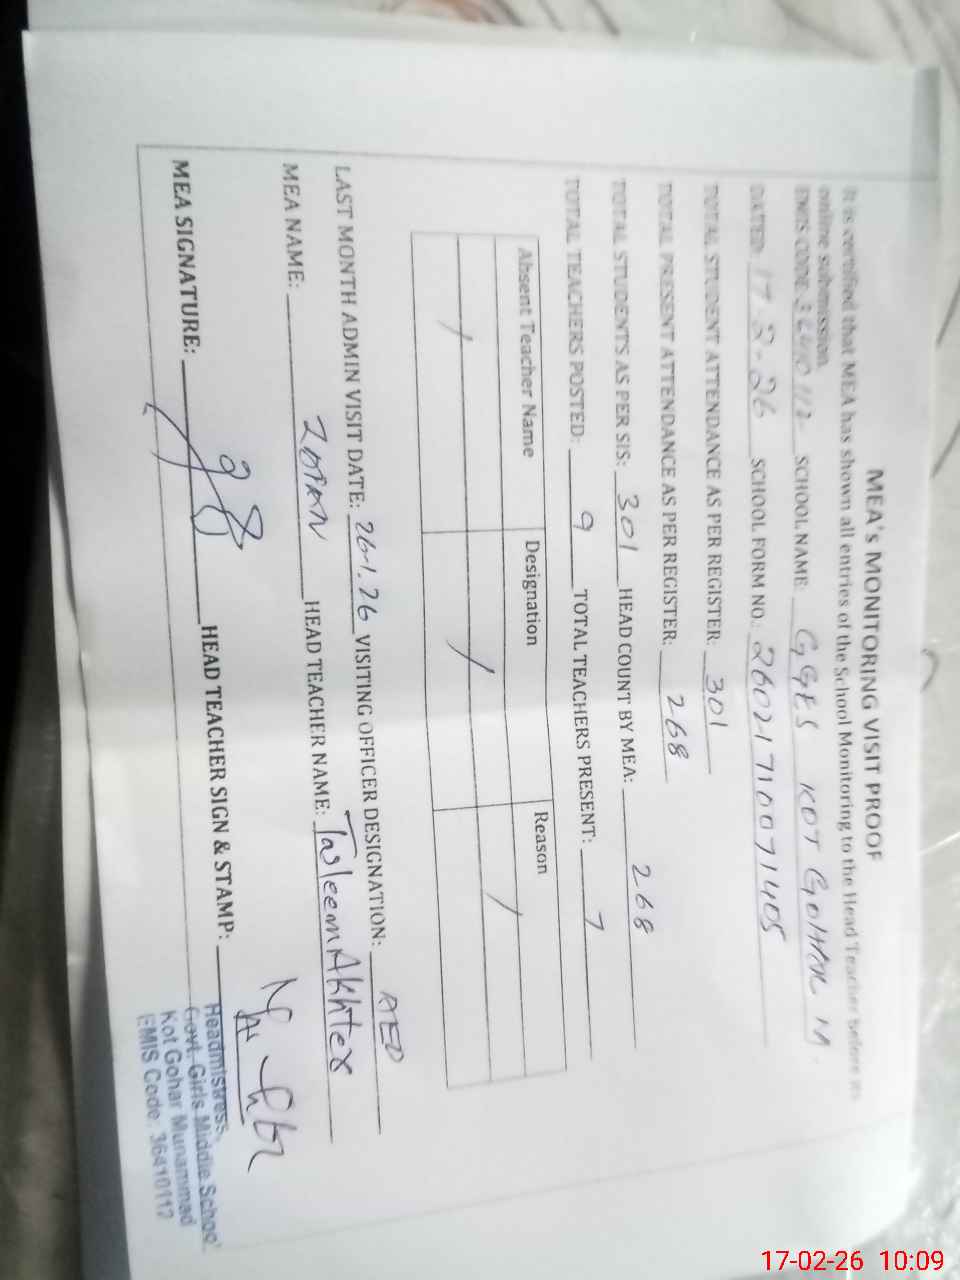 MEA's MONITORING VISIT PROOF
It is certified that MEA has shown all entries of the School Monitoring to the Head Teacher before its
online submission.
EMIS CODE SCHOOL NAME: GGES KOT GOHAR M
DATED: 17-2-26 SCHOOL FORM NO.: 26021710071405
TOTAL STUDENT ATTENDANCE AS PER REGISTER: 301
TOTAL PRESENT ATTENDANCE AS PER REGISTER: 268
TOTAL STUDENTS AS PER SIS: 301 HEAD COUNT BY MEA: 268
TOTAL TEACHERS POSTED: 9 TOTAL TEACHERS PRESENT: 7
Absent Teacher Name Designation Reason
/ / /
LAST MONTH ADMIN VISIT DATE: 26-1.26 VISITING OFFICER DESIGNATION:
MEA NAME: HEAD TEACHER NAME: Tasleem Akhter
MEA SIGNATURE: HEAD TEACHER SIGN & STAMP:
Headmistress,
Govt. Girls Middle School
Kot Gohar Muhammad
EMIS Code: 36410112
17-02-26 10:09